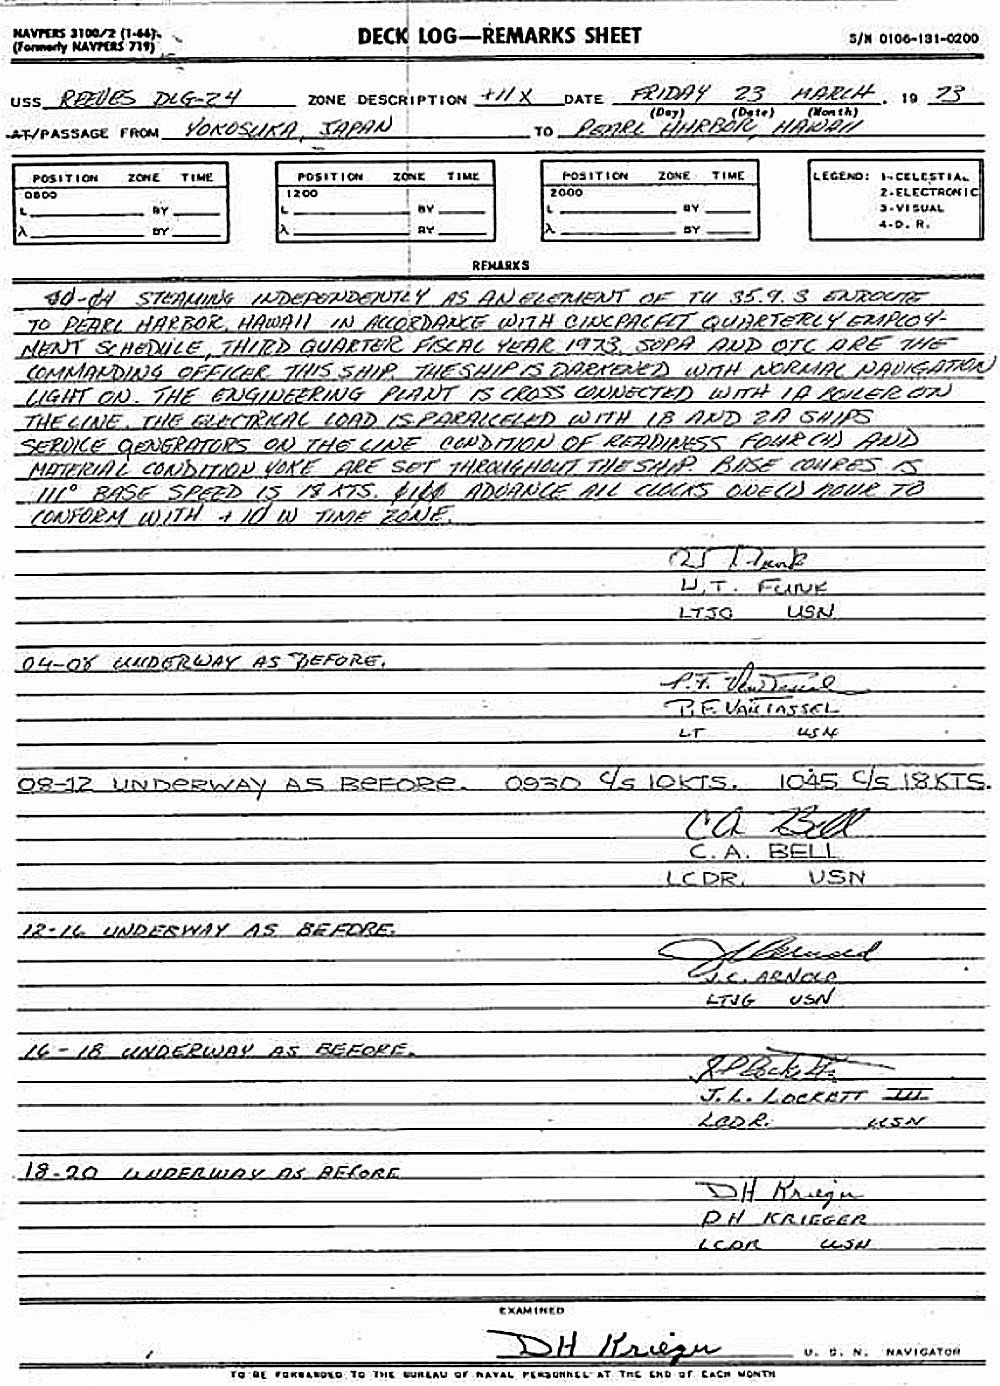 NAVPERS 3100/2 (1-64)
(Formerly NAVPERS 719)
DECK LOG—REMARKS SHEET
S/N 0106-131-0200
USS REEVES DLG-24 ZONE DESCRIPTION +11 X DATE FRIDAY 23 MARCH, 19 73
(Day) (Date) (Month)
AT/PASSAGE FROM YOKOSUKA, JAPAN TO PEARL HARBOR, HAWAII
POSITION ZONE TIME
0800
L BY
λ BY
POSITION ZONE TIME
1200
L BY
λ BY
POSITION ZONE TIME
2000
L BY
λ BY
LEGEND: 1-CELESTIAL
2-ELECTRONIC
3-VISUAL
4-D. R.
REMARKS
00-04 STEAMING INDEPENDENTLY AS AN ELEMENT OF TU 35.9.3 ENROUTE
TO PEARL HARBOR, HAWAII IN ACCORDANCE WITH CINCPACFLT QUARTERLY EMPLOY-
MENT SCHEDULE, THIRD QUARTER FISCAL YEAR 1973. SOPA AND OTC ARE THE
COMMANDING OFFICER THIS SHIP. THE SHIP IS DARKENED WITH NORMAL NAVIGATION
LIGHT ON. THE ENGINEERING PLANT IS CROSS CONNECTED WITH 1A BOILER ON
THE LINE. THE ELECTRICAL LOAD IS PARALLELED WITH 1B AND 2A SHIPS
SERVICE GENERATORS ON THE LINE CONDITION OF READINESS FOUR (4) AND
MATERIAL CONDITION YOKE ARE SET THROUGHOUT THE SHIP. BASE COURES IS
111° BASE SPEED IS 18 KTS. 0100 ADVANCE ALL CLOCKS ONE (1) HOUR TO
CONFORM WITH +10 W TIME ZONE.
W.T. FUNK
LTJG USN
04-08 UNDERWAY AS BEFORE.
P.F. VanTassel
P.F. VANTASSEL
LT USN
08-12 UNDERWAY AS BEFORE. 0930 C/S 10 KTS. 1045 C/S 18 KTS.
CA Bell
C.A. BELL
LCDR. USN
12-16 UNDERWAY AS BEFORE.
J.C. Arnold
J.C. ARNOLD
LTJG USN
16-18 UNDERWAY AS BEFORE.
J.L. LOCKETT III
LCDR. USN
18-20 UNDERWAY AS BEFORE
DH Krieger
DH KRIEGER
LCDR USN
EXAMINED
DH Krieger U. S. N. NAVIGATOR
TO BE FORWARDED TO THE BUREAU OF NAVAL PERSONNEL AT THE END OF EACH MONTH